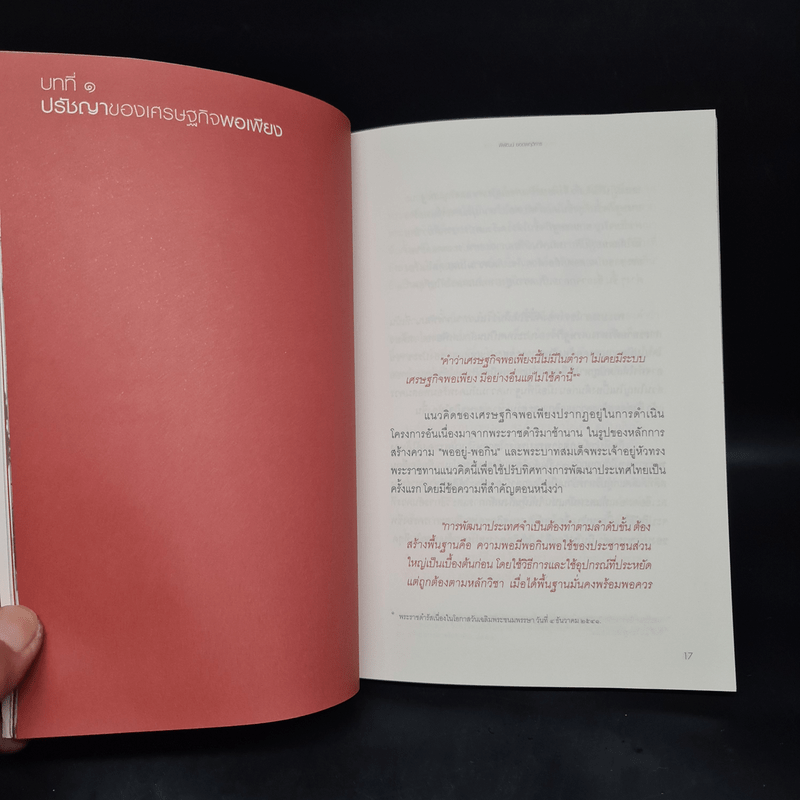 บทที่ ๑
ปรัชญาของเศรษฐกิจพอเพียง
"คำว่าเศรษฐกิจพอเพียงนี้ไม่มีในตำรา ไม่เคยมีระบบ
เศรษฐกิจพอเพียง มีอย่างอื่นแต่ไม่ใช้คำนี้"*
แนวคิดของเศรษฐกิจพอเพียงปรากฏอยู่ในการดำเนิน
โครงการอันเนื่องมาจากพระราชดำริมาช้านาน ในรูปของหลักการ
สร้างความ "พออยู่-พอกิน" และพระบาทสมเด็จพระเจ้าอยู่หัวทรง
พระราชทานแนวคิดนี้เพื่อใช้ปรับทิศทางการพัฒนาประเทศไทยเป็น
ครั้งแรก โดยมีข้อความที่สำคัญตอนหนึ่งว่า
"การพัฒนาประเทศจำเป็นต้องทำตามลำดับขั้น ต้อง
สร้างพื้นฐานคือ ความพอมีพอกินพอใช้ของประชาชนส่วน
ใหญ่เป็นเบื้องต้นก่อน โดยใช้วิธีการและใช้อุปกรณ์ที่ประหยัด
แต่ถูกต้องตามหลักวิชา เมื่อได้พื้นฐานมั่นคงพร้อมพอควร
* พระราชดำรัสเนื่องในโอกาสวันเฉลิมพระชนมพรรษา วันที่ ๔ ธันวาคม
17